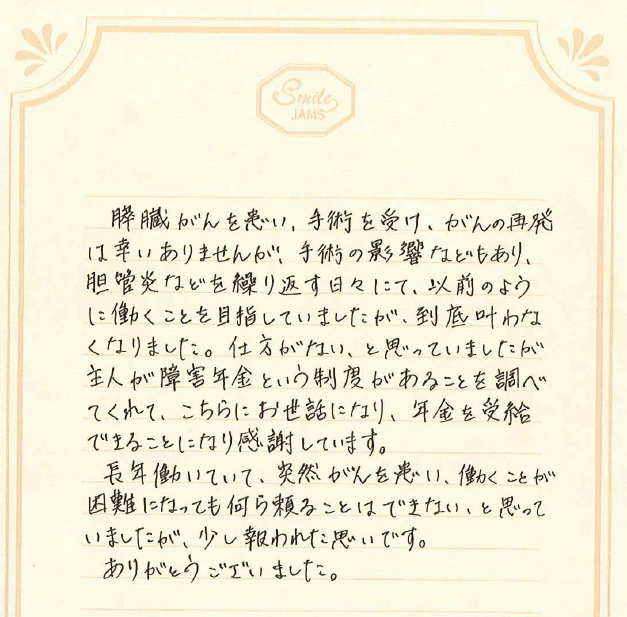 Smile
JAMS
膵臓がんを患い、手術を受け、がんの再発
は幸いありませんが、手術の影響などもあり、
胆管炎などを繰り返す日々にて、以前のよう
に働くことを目指していましたが、到底叶わな
くなりました。仕方がない、と思っていましたが
主人が障害年金という制度があることを調べ
てくれて、こちらにお世話になり、年金を受給
できることになり感謝しています。
長年働いていて、突然がんを患い、働くことが
困難になっても何ら頼ることはできない、と思って
いましたが、少し報われた思いです。
ありがとうございました。